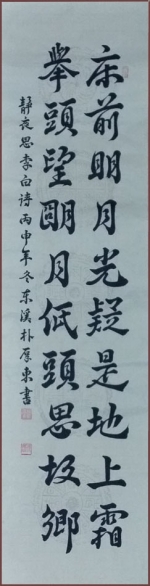 床前明月光疑是地上霜
舉頭望明月低頭思故鄉
靜夜思李白詩丙申年冬東溪朴厚東書